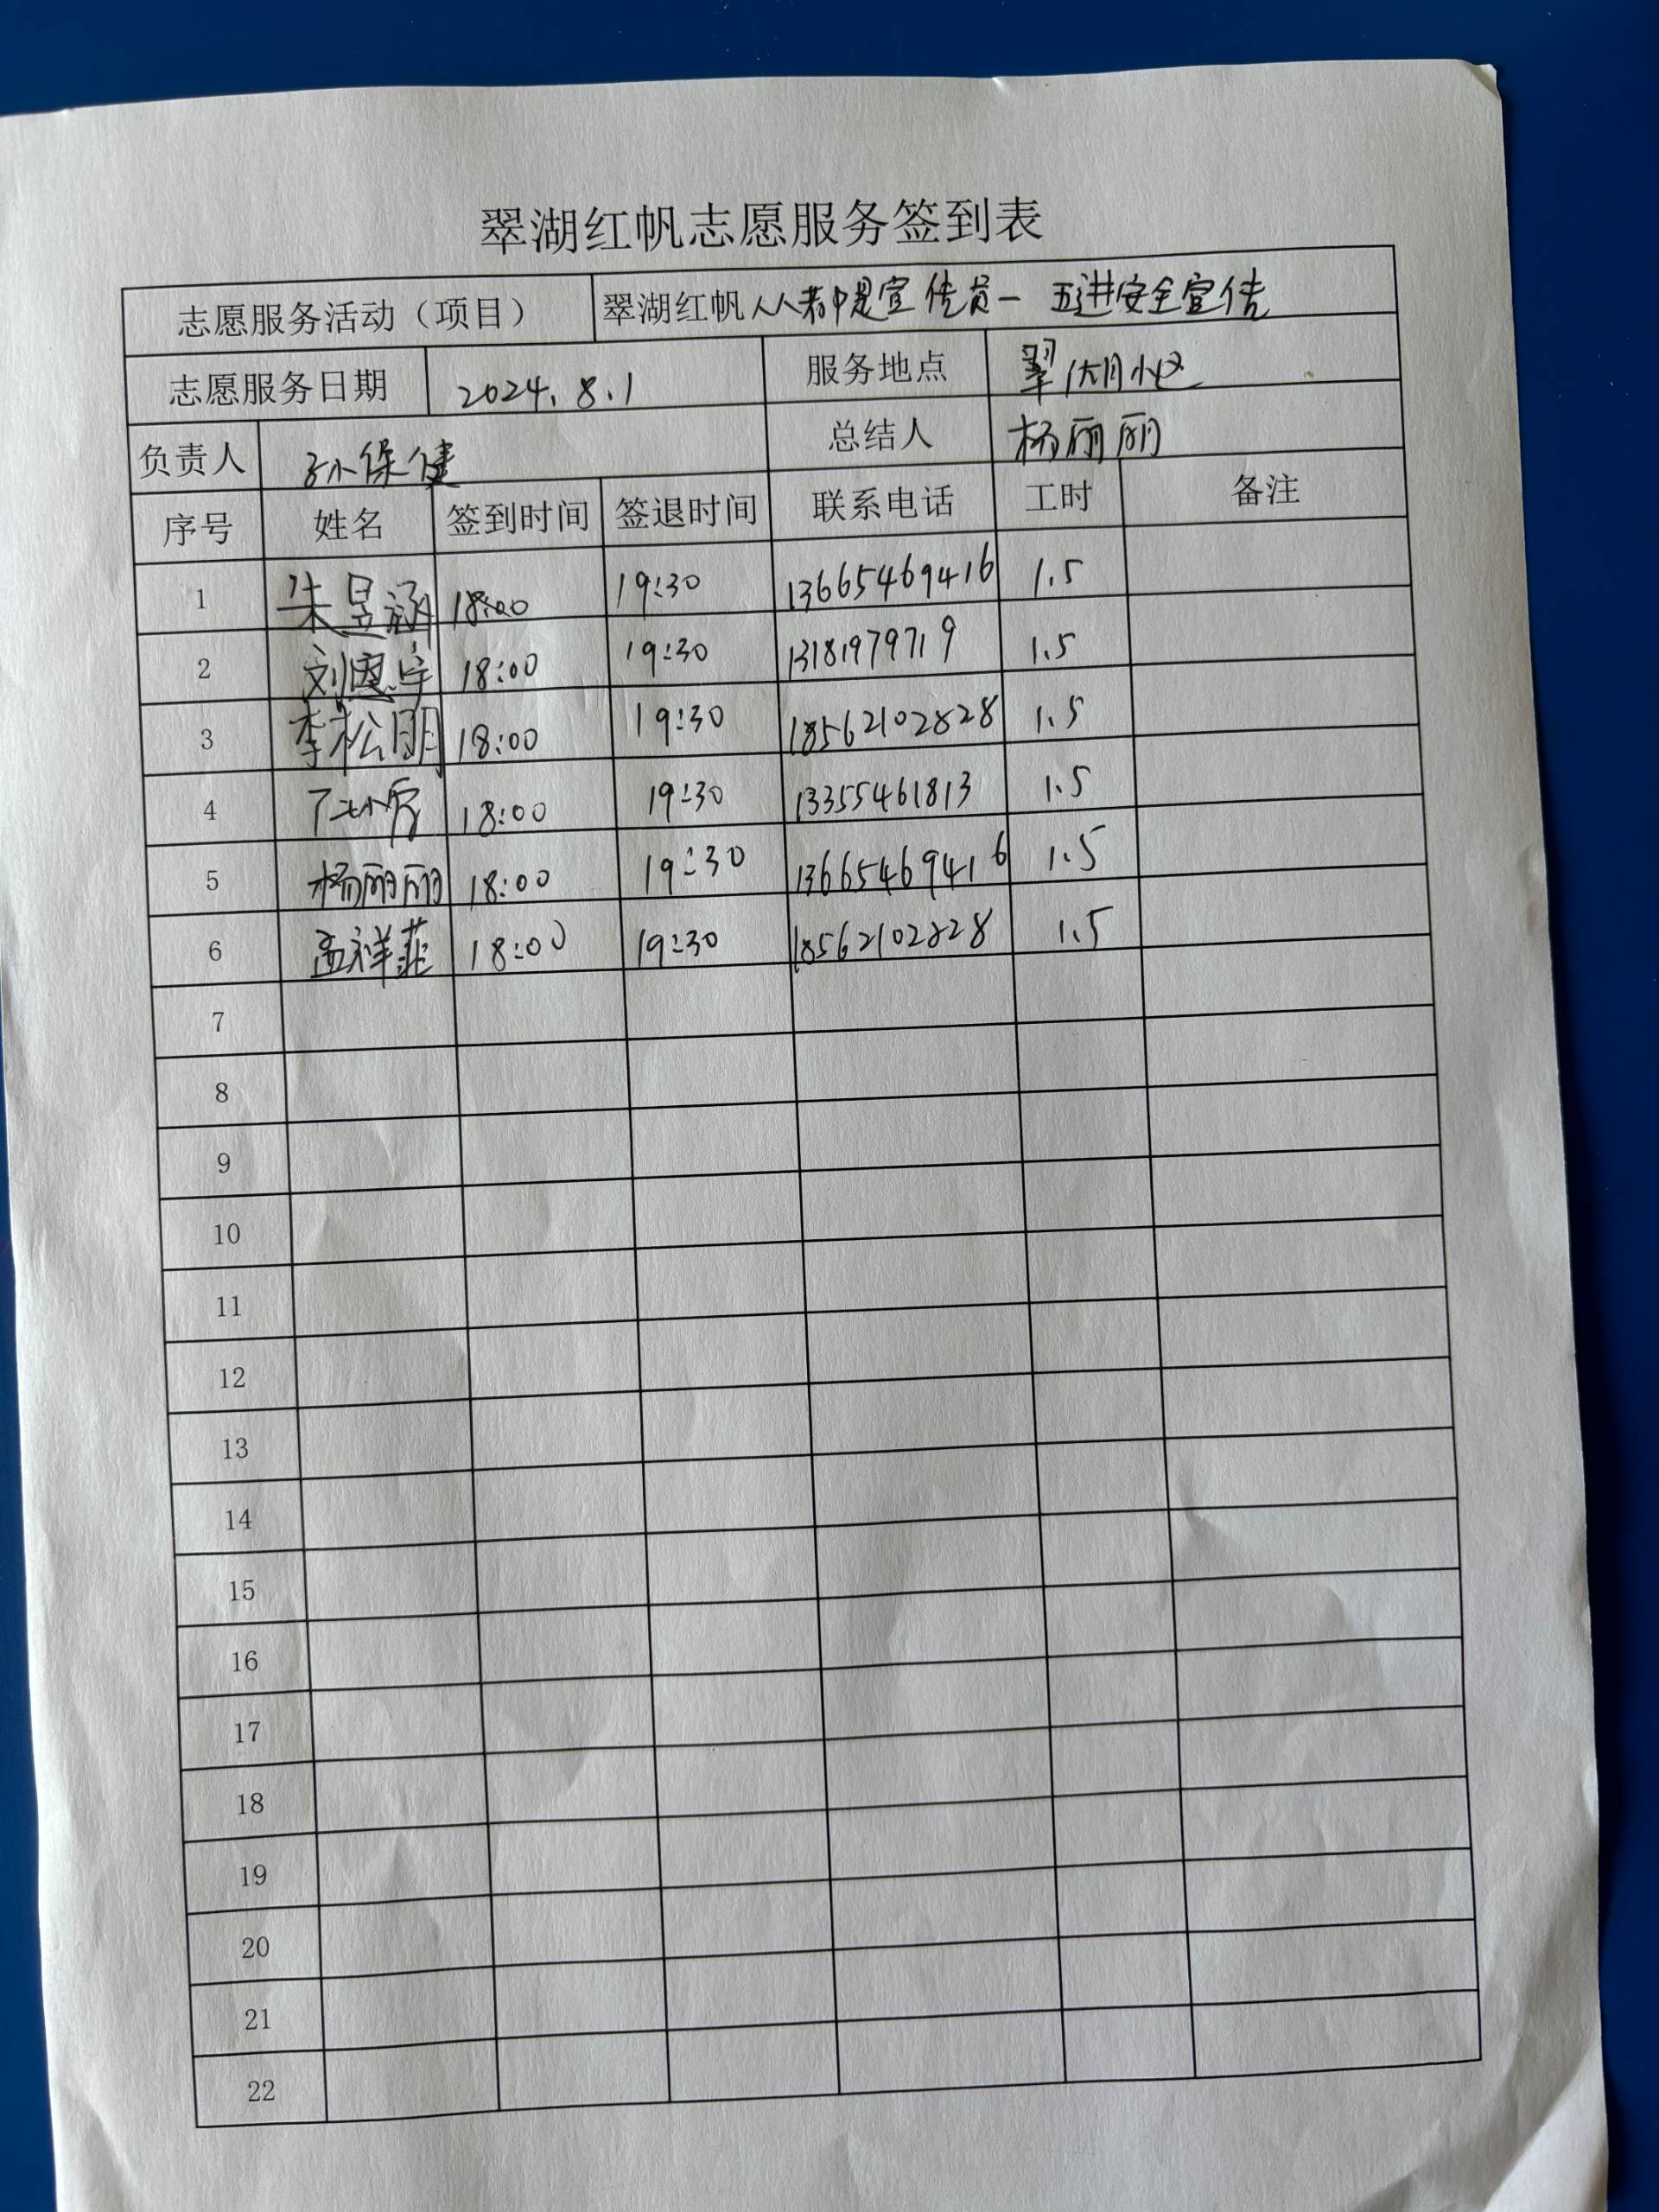 翠湖红帆志愿服务签到表
志愿服务活动（项目） 翠湖红帆人人都是宣传员一 五进安全宣传
志愿服务日期 2024.8.1 服务地点 翠湖小区
负责人 孙保健 总结人 杨丽丽
序号 姓名 签到时间 签退时间 联系电话 工时 备注
1 朱昱涵 18:00 19:30 13665469416 1.5
2 刘恩宇 18:00 19:30 13181979719 1.5
3 李松明 18:00 19:30 18562102828 1.5
4 18:00 19:30 13355461813 1.5
5 杨丽丽 18:00 19:30 13665469416 1.5
6 孟祥菲 18:00 19:30 18562102828 1.5
7
8
9
10
11
12
13
14
15
16
17
18
19
20
21
22